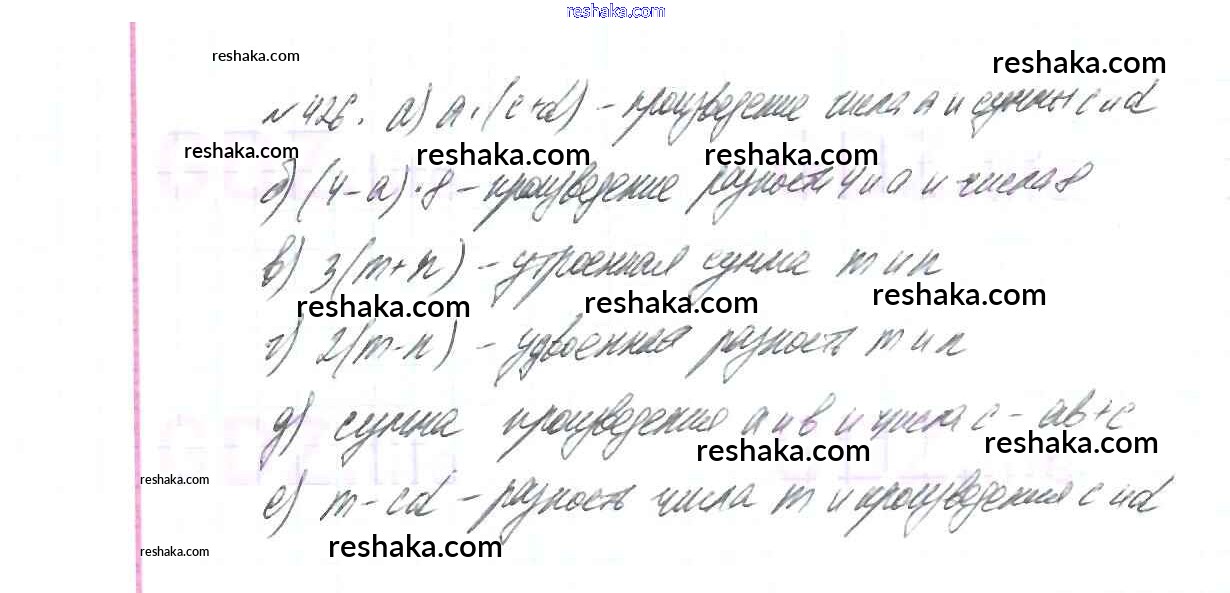 reshaka.com
reshaka.com
reshaka.com
№ 426. а) a·(c+d) – произведение числа a и суммы c и d
reshaka.com
reshaka.com
reshaka.com
б) (4–a)·8 – произведение разности 4 и a и числа 8
в) 3(m+n) – утроенная сумма m и n
reshaka.com
reshaka.com
reshaka.com
г) 2(m-n) – удвоенная разность m и n
д) сумма произведения a и b и числа c – ab+c
reshaka.com
reshaka.com
reshaka.com
е) m – cd – разность числа m и произведения c и d
reshaka.com
reshaka.com